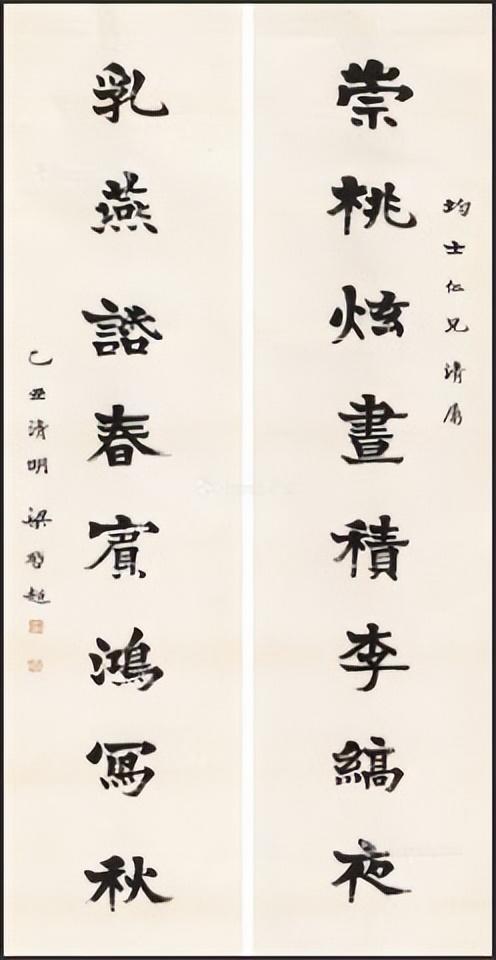 均士仁兄清屬
崇桃炫晝積李縞夜
乳燕諮春賓鴻寫秋
乙丑清明 梁啟超